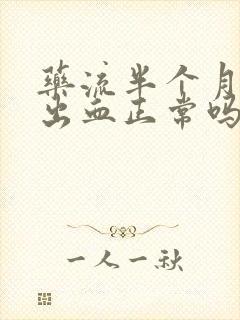 药流半个月
出血正常吗
一人一秋